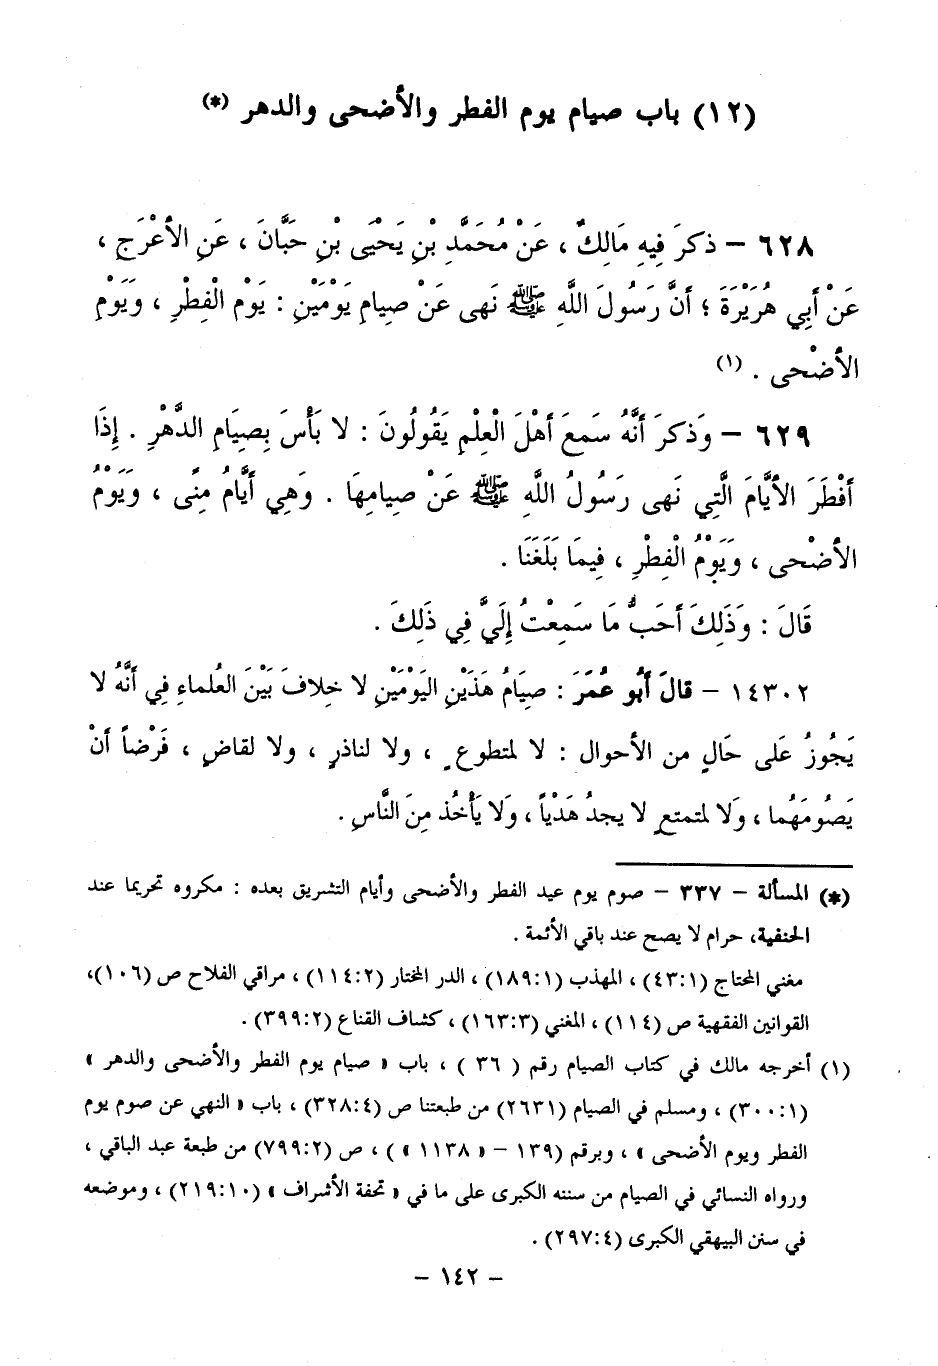 (١٢) باب صيام يوم الفطر والأضحى والدهر (*)
٦٢٨ – ذكرَ فِيهِ مَالِكٌ ، عَنْ مُحَمَّدِ بْنِ يَحْيَى بْنِ حَبَّانَ ، عَنِ الأعْرَجِ ،
عَنْ أَبِي هُرَيْرَةَ ؛ أَنَّ رَسُولَ اللَّهِ ﷺ نَهى عَنْ صِيامِ يَوْمَيْنِ : يَوْمِ الْفِطْرِ ، وَيَوْمِ
الأَضْحى . (١)
٦٢٩ – وَذكرَ أَنَّهُ سَمعَ أَهْلَ الْعِلْمِ يَقُولُونَ : لا بَأْسَ بِصِيَامِ الدَّهْرِ . إِذَا
أَفْطَرَ الأَيَّامَ الَّتِي نَهى رَسُولُ اللَّهِ ﷺ عَنْ صيامِهَا . وَهِي أَيَّامُ مِنًى ، وَيَوْمُ
الأَضْحى ، وَيَوْمُ الْفِطْرِ ، فِيمَا بَلَغَنَا .
قَالَ : وَذَلِكَ أَحَبُّ مَا سَمِعْتُ إِلَيَّ فِي ذَلِكَ .
١٤٣٠٢ – قالَ أَبُو عُمَرَ : صيَامُ هَذَيْنِ اليَوْمَيْنِ لا خِلافَ بَيْنَ العُلماءِ فِي أَنَّهُ لا
يَجُوزُ عَلى حَالٍ من الأحوالِ : لا لمتطوعٍ ، ولا لناذرٍ ، ولا لقاضٍ ، فَرْضاً أَنْ
يَصُومَهُما ، وَلا لمتمتعٍ لا يجدُ هَدْياً ، وَلا يَأْخُذ مِنَ النَّاسِ.
(*) المسألة – ٣٣٧ – صوم يوم عيد الفطر والأضحى وأيام التشريق بعده : مكروه تحريما عند
الحنفية، حرام لا يصح عند باقي الأئمة .
مغني المحتاج (٤٣:١) ، المهذب (١٨٩:١) ، الدر المختار (١١٤:٢) ، مراقي الفلاح ص (١٠٦)،
القوانين الفقهية ص (١١٤) ، المغني (١٦٣:٣) ، كشاف القناع (٣٩٩:٢).
(١) أخرجه مالك في كتاب الصيام رقم ( ٣٦ ) ، باب « صيام يوم الفطر والأضحى والدهر »
(٣٠٠:١) ، ومسلم في الصيام (٢٦٣١) من طبعتنا ص (٣٢٨:٤) ، باب « النهي عن صوم يوم
الفطر ويوم الأضحى » ، وبرقم (١٣٩ – « ١١٣٨ » ) ، ص (٧٩٩:٢) من طبعة عبد الباقي ،
ورواه النسائي في الصيام من سننه الكبرى على ما في « تحفة الأشراف » (٢١٩:١٠) ، وموضعه
في سنن البيهقي الكبرى (٢٩٧:٤) .
– ١٤٢ –